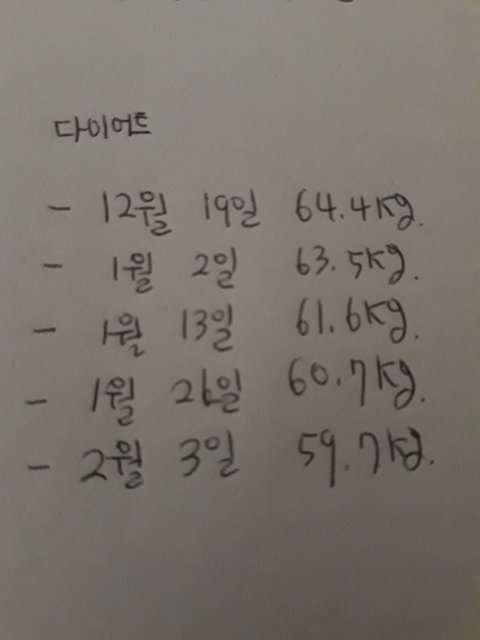 다이어트
- 12월 19일 64.4kg.
- 1월 2일 63.5kg.
- 1월 13일 61.6kg.
- 1월 26일 60.7kg.
- 2월 3일 59.7kg.